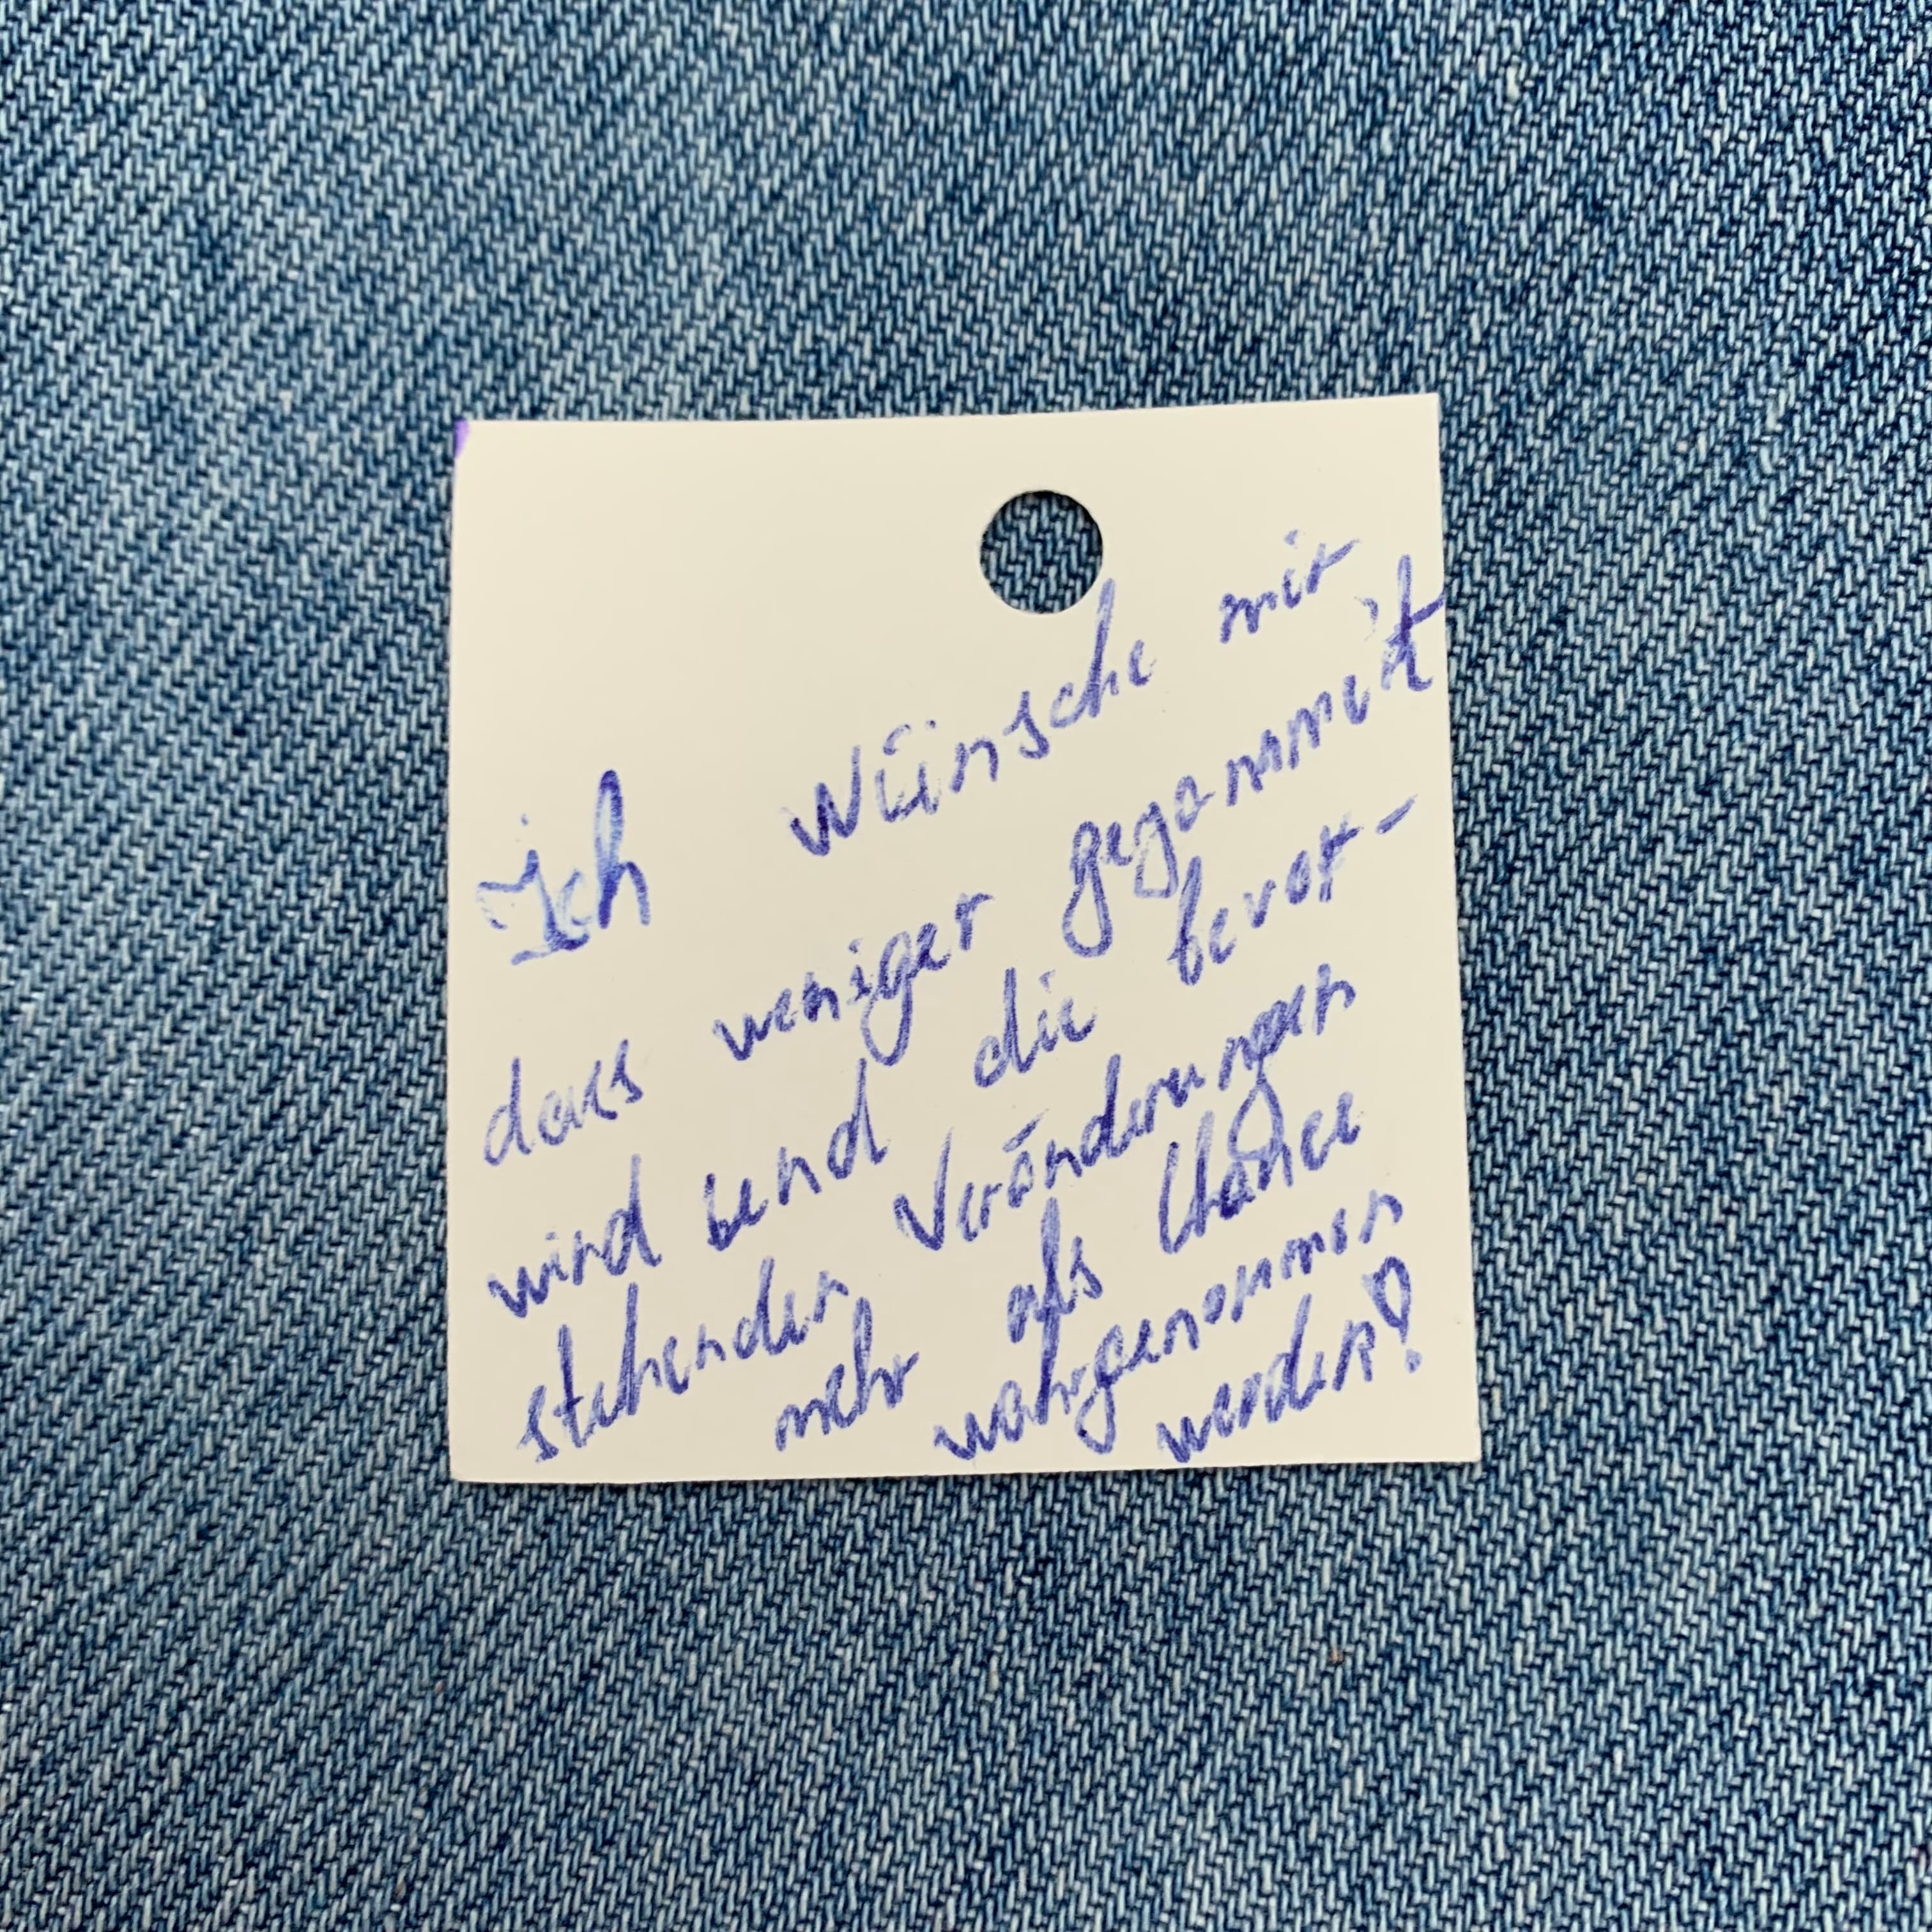 Ich wünsche mir
dass weniger gejammert
wird send die bevor-
stehenden Veränderungen
mehr als Chance
wahrgenommen
werden!